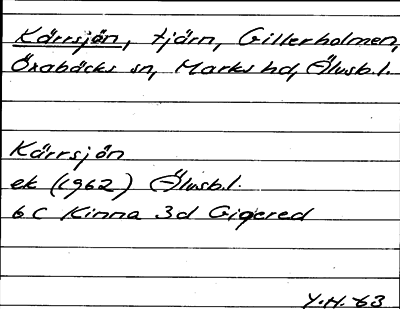 Kärrsjön, tjärn, Gillerholmen,
Öxabäcks sn, Marks hd, Älvsb.l.
Kärrsjön
ek (1962) Älvsb.l.
6C Kinna 3d Gigered
Y.H. 63